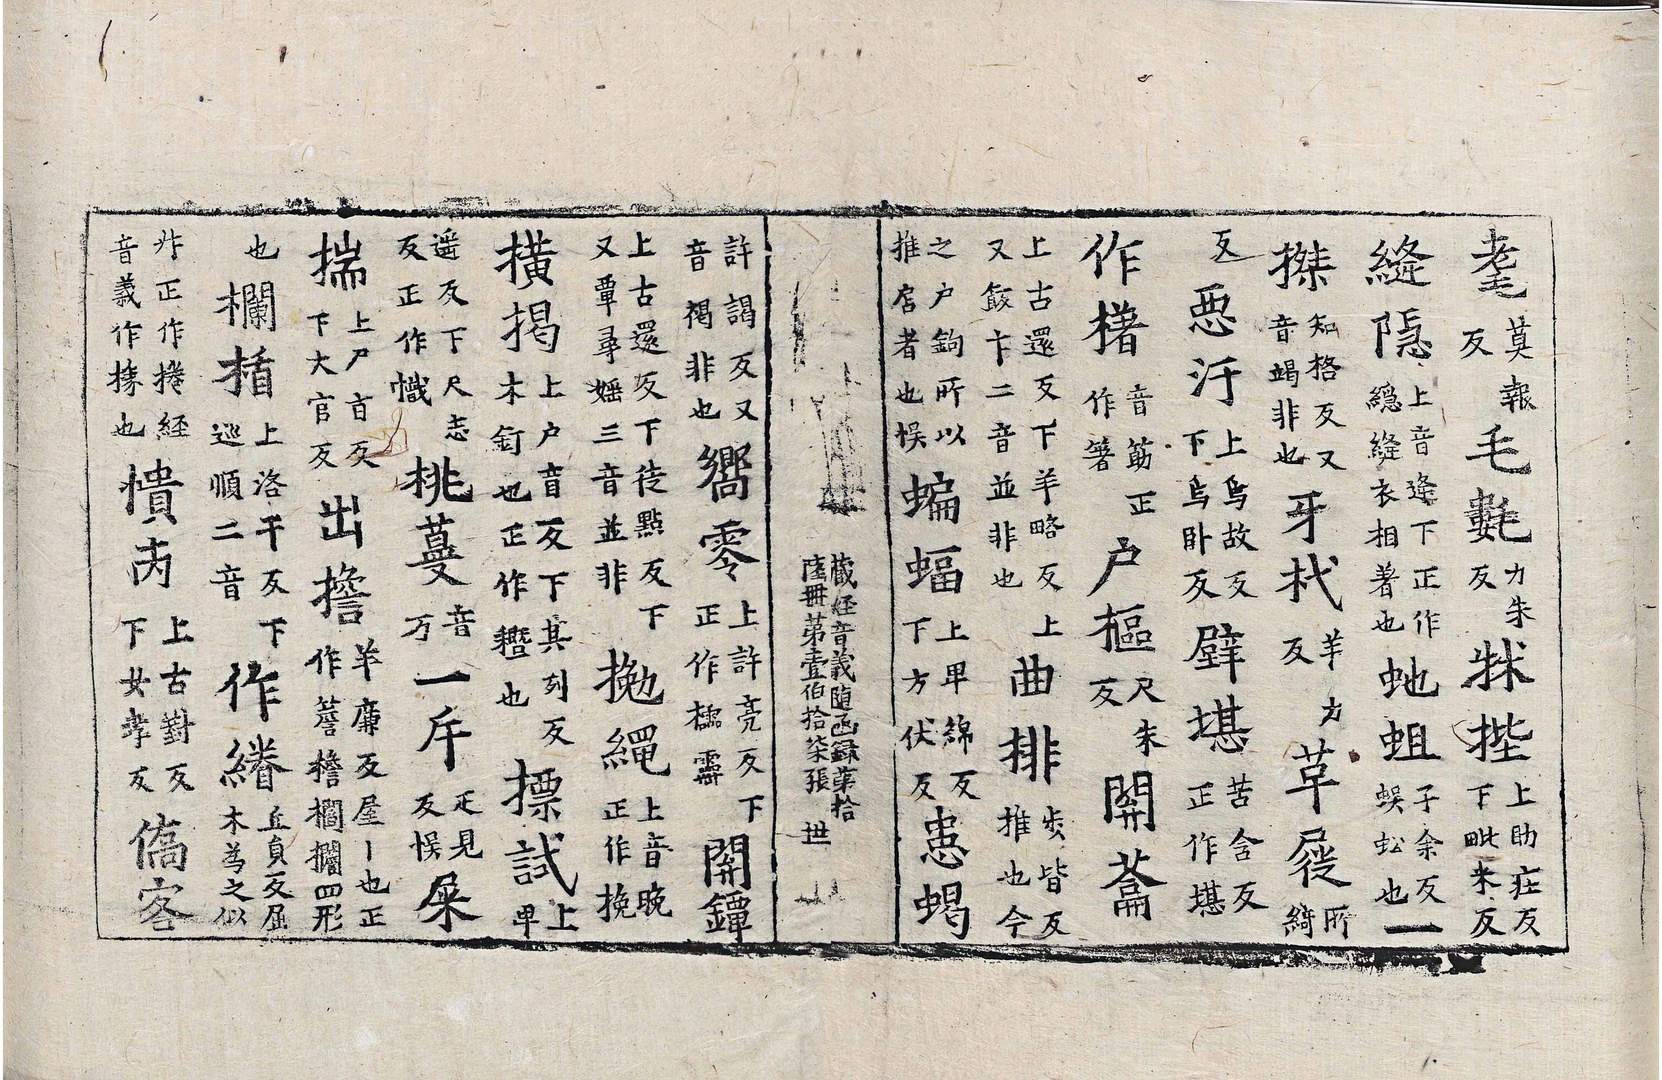 耄莫報反毛氀力朱反牀挫上助庄反下毗米反
縫隠上音逢下正作縕縫衣相著也虵蛆子余反蜈蚣也一
搩知格反又音竭非也牙杙羊力反草屣所綺
反惡汙上烏故反下烏卧反躃堪苦含反正作堪
作櫡音筯正作箸户樞尺朱反開䈂
上古還反下羊略反又餸卞二音並非也上曲排步皆反推也今
之户鉤所以推扂者也悮蝙蝠上卑綿反下方伏反患蝎
藏経音義随函録第拾
陸冊第壹伯拾柒張 世
許謁反又音褐非也嚮零上許亮反下正作櫺霝開鐔
上古還反下徒點反下又覃尋婬三音並非㧓繩上音晚正作挽
撗揭上户盲反下其列反木釘也正作䡽也摽試上卑
遥反下尺志反正作幟桃蔓音万一斥疋見反悮杘
揣上尸盲反下大官反出擔羊廉反屋丨也正作簷檐櫩㩜四形
也欄揗上洛干反下巡順二音作綣丘貟反屈木為之似
𠦑正作捲経音義作㨾也憒丙上古對反下女孝反僑客